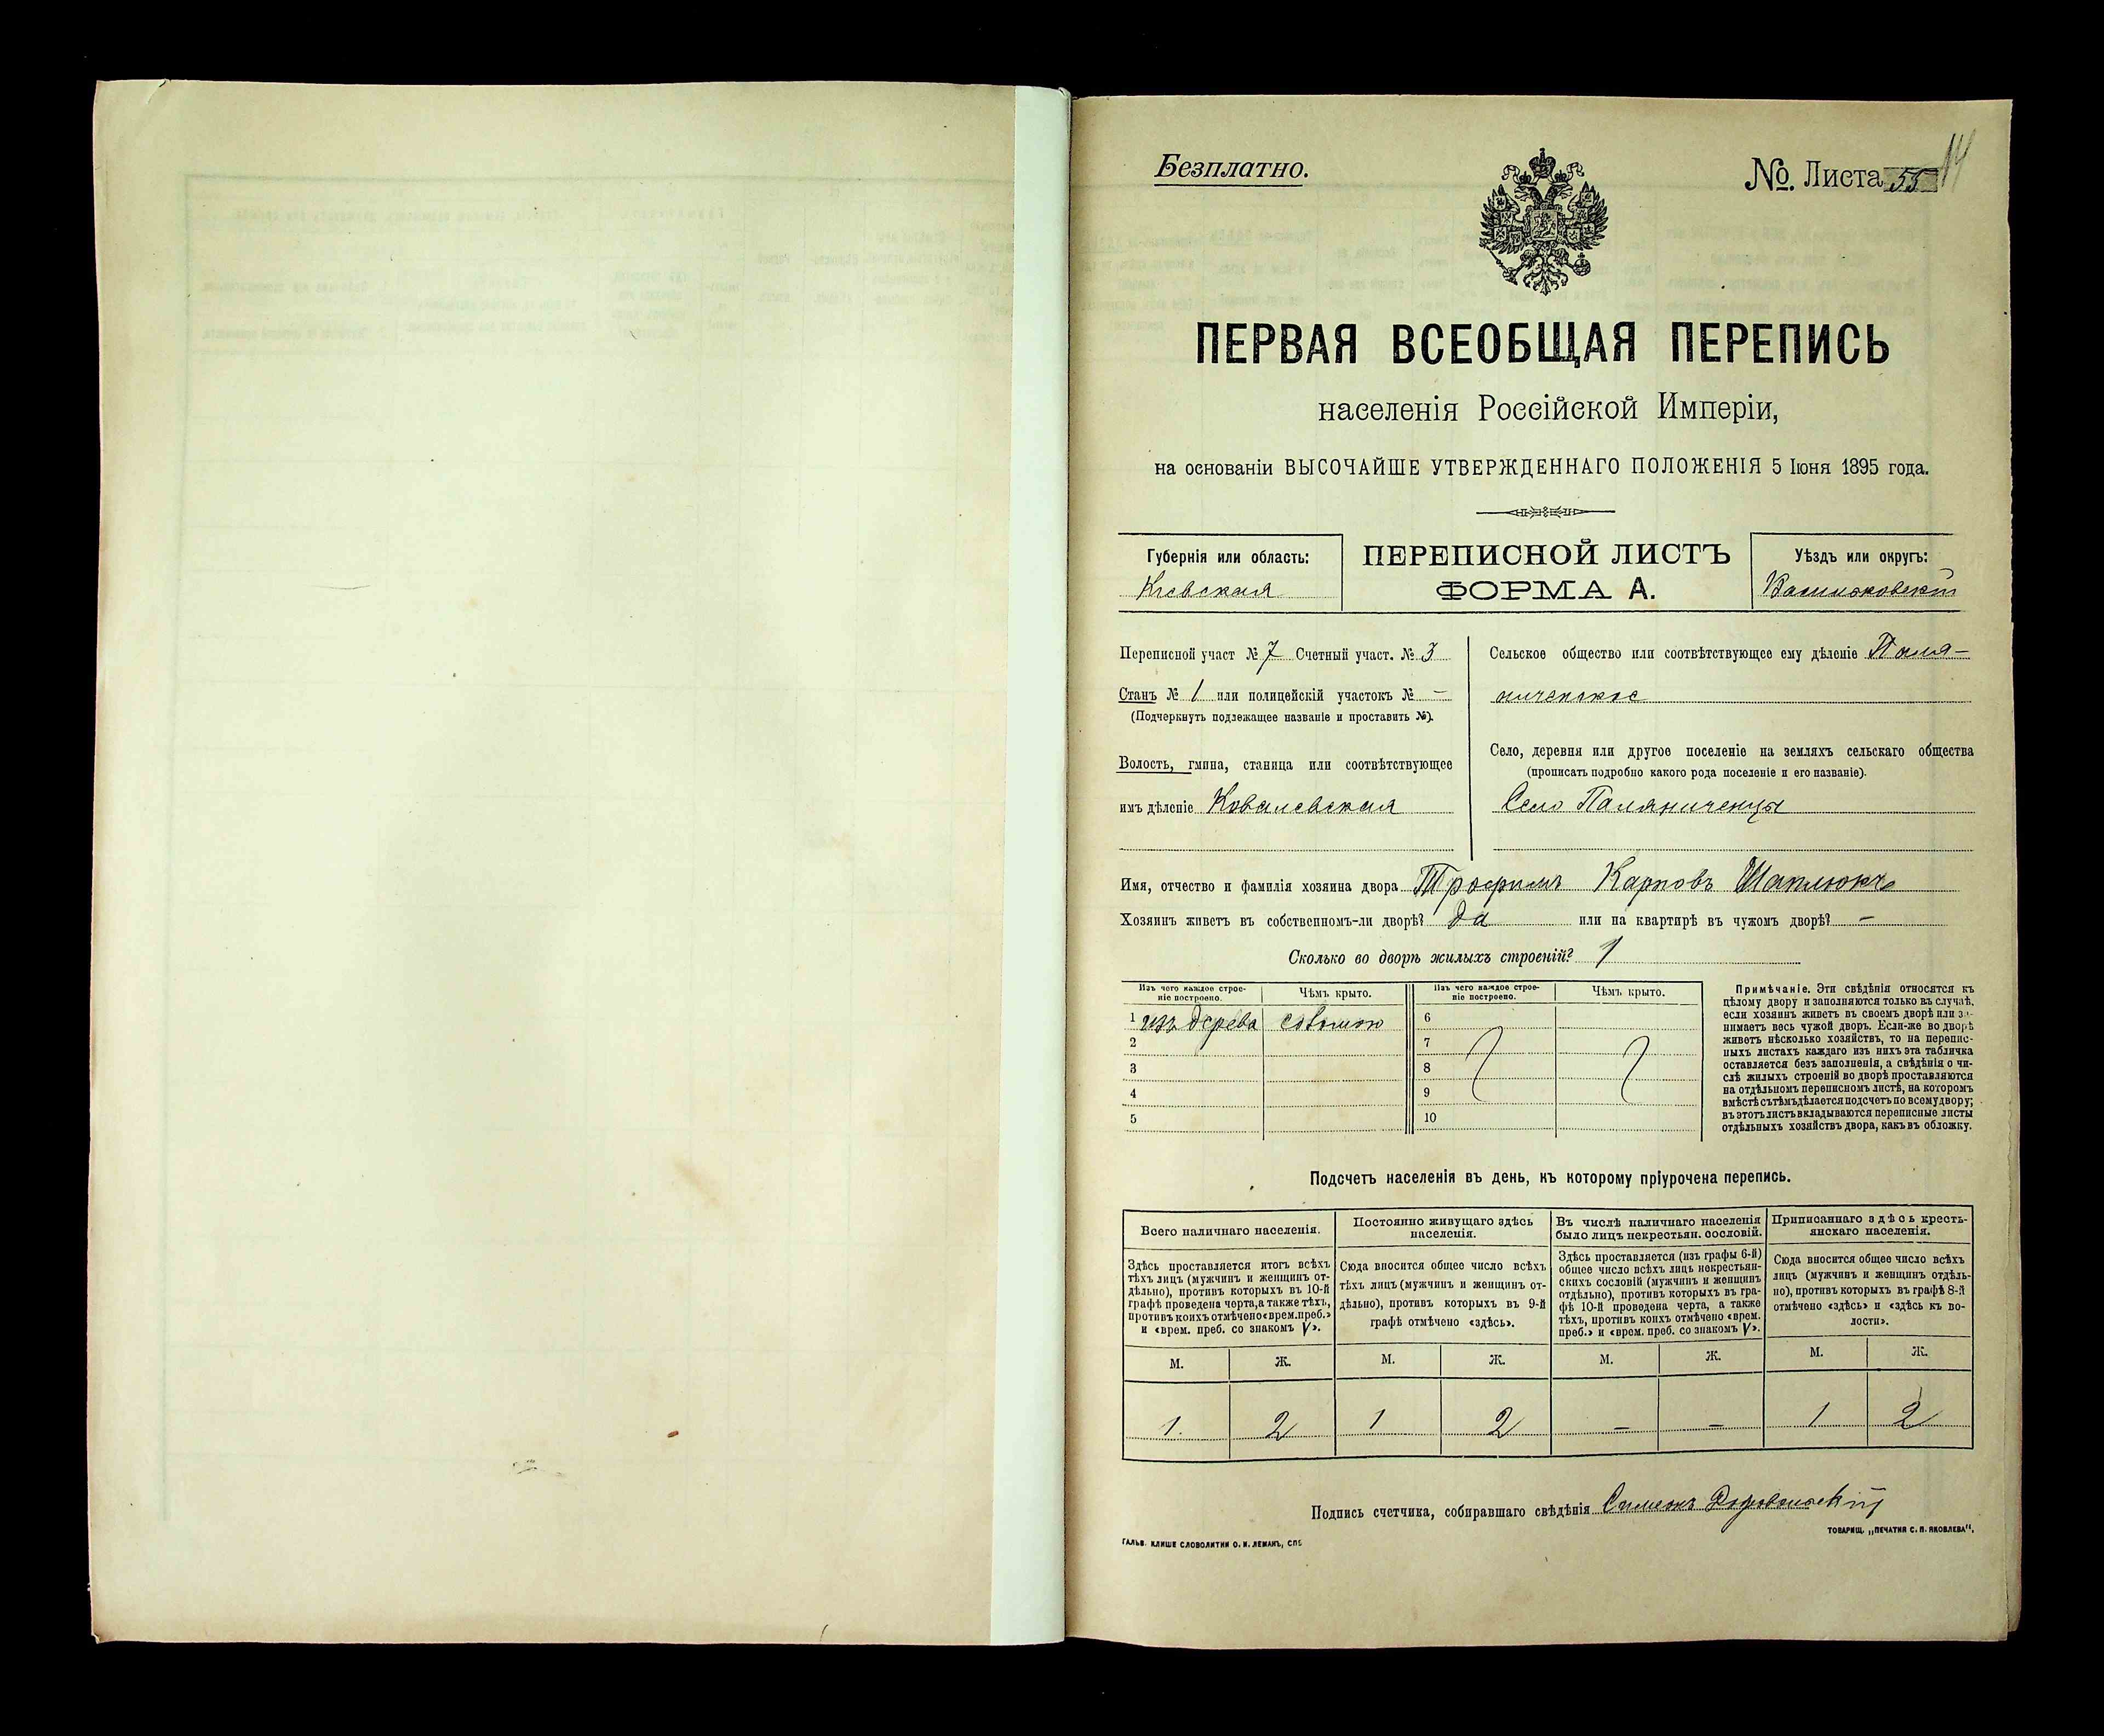 Безплатно.
№ Листа 55
ПЕРВАЯ ВСЕОБЩАЯ ПЕРЕПИСЬ
населенія Россійской Имперіи,
на основаніи ВЫСОЧАЙШЕ УТВЕРЖДЕННАГО ПОЛОЖЕНІЯ 5 Іюня 1895 года.
Губернія или область:
Кіевская
ПЕРЕПИСНОЙ ЛИСТЪ
ФОРМА А.
Уѣздъ или округъ:
Васильковскій
Переписной участ № 7 Счетный участ. № 3
Станъ № 1 или полицейскій участокъ № –
(Подчеркнуть подлежащее названіе и проставить №).
Волость, гмина, станица или соотвѣтствующее
имъ дѣленіе Ковалевская
Сельское общество или соотвѣтствующее ему дѣленіе Паля-
ниченское
Село, деревня или другое поселеніе на земляхъ сельскаго общества
(прописать подробно какого рода поселеніе и его названіе).
Село Паляниченцы
Имя, отчество и фамилія хозяина двора Трофимъ Карповъ
Хозяинъ живетъ въ собственномъ-ли дворѣ? Да или на квартирѣ въ чужомъ дворѣ? –
Сколько во дворѣ жилыхъ строеній? 1
Изъ чего каждое строе-
ніе построено.
Чѣмъ крыто.
Изъ чего каждое строе-
ніе построено.
Чѣмъ крыто.
1 изъ дерева соломою
2
3
4
5
6
7
8
9
10
Примѣчаніе. Эти свѣдѣнія относятся къ
цѣлому двору и заполняются только въ случаѣ,
если хозяинъ живетъ въ своемъ дворѣ или за-
нимаетъ весь чужой дворъ. Если-же во дворѣ
живетъ нѣсколько хозяйствъ, то на перепис-
ныхъ листахъ каждаго изъ нихъ эта табличка
оставляется безъ заполненія, а свѣдѣнія о чи-
слѣ жилыхъ строеній во дворѣ проставляются
на отдѣльномъ переписномъ листѣ, на которомъ
вмѣстѣ съ тѣмъ дѣлается подсчетъ по всему двору;
въ этотъ листъ вкладываются переписные листы
отдѣльныхъ хозяйствъ двора, какъ въ обложку.
Подсчетъ населенія въ день, къ которому пріурочена перепись.
Всего наличнаго населенія.
Здѣсь проставляется итогъ всѣхъ
тѣхъ лицъ (мужчинъ и женщинъ от-
дѣльно), противъ которыхъ въ 10-й
графѣ проведена черта, а также тѣхъ,
противъ коихъ отмѣчено «врем. преб.»
и «врем. преб. со знакомъ V».
Постоянно живущаго здѣсь
населенія.
Сюда вносится общее число всѣхъ
тѣхъ лицъ (мужчинъ и женщинъ от-
дѣльно), противъ которыхъ въ 9-й
графѣ отмѣчено «здѣсь».
Въ числѣ наличнаго населенія
было лицъ некрестьян. сословій.
Здѣсь проставляется (изъ графы 6-й)
общее число всѣхъ лицъ некрестьян-
скихъ сословій (мужчинъ и женщинъ
отдѣльно), противъ которыхъ въ гра-
фѣ 10-й проведена черта, а также
тѣхъ, противъ коихъ отмѣчено «врем.
преб.» и «врем. преб. со знакомъ V».
Приписаннаго здѣсь кресть-
янскаго населенія.
Сюда вносится общее число всѣхъ
лицъ (мужчинъ и женщинъ отдѣль-
но), противъ которыхъ въ графѣ 8-й
отмѣчено «здѣсь» и «здѣсь къ во-
лости».
М. Ж. М. Ж. М. Ж. М. Ж.
1 2 1 2 – – 1 2
Подпись счетчика, собиравшаго свѣдѣнія
ГАЛЬВ. КЛИШЕ СЛОВОЛИТНИ О. И. ЛЕМАНЪ, СПБ
ТОВАРИЩ. „ПЕЧАТНЯ С. П. ЯКОВЛЕВА".